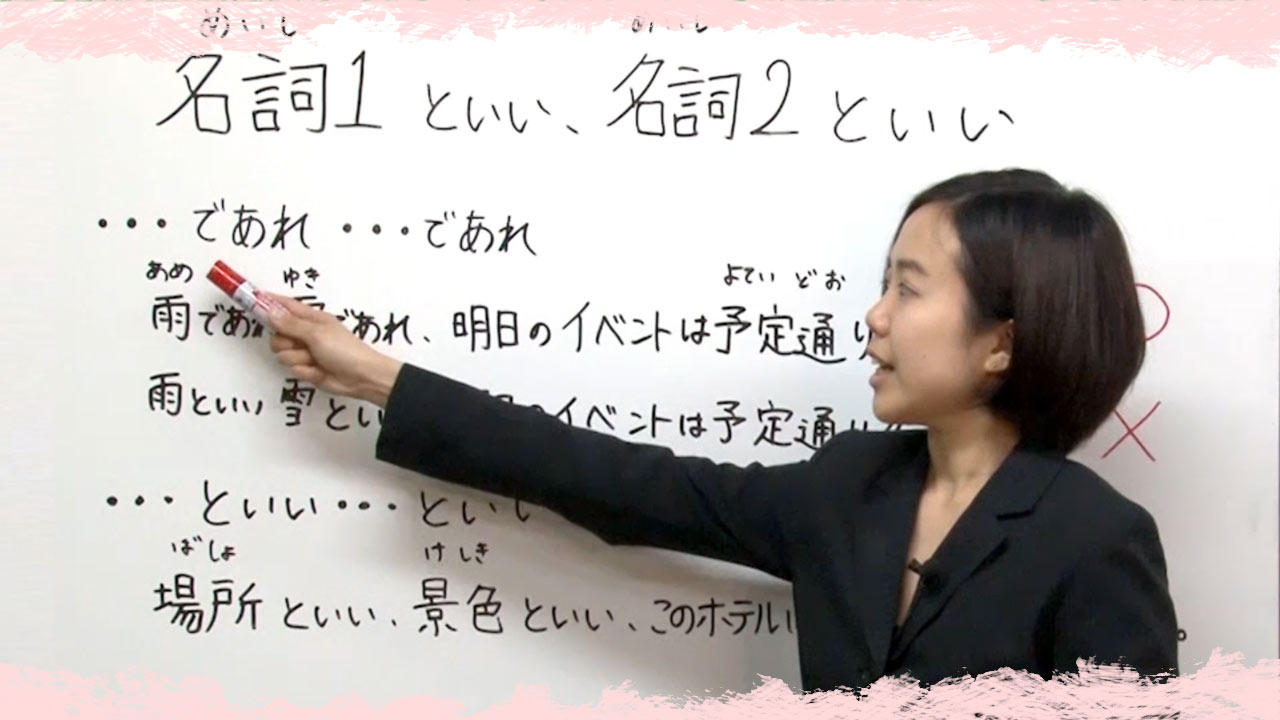 めいし めいし
名詞1 といい、名詞2 といい
・・・であれ ・・・であれ
あめ ゆき よてい どお
雨であれ であれ、明日のイベントは予定通り
雨といい 雪とい のイベントは予定通り
×
・・・といい・・・とい
ばしょ けしき
場所 といい、景色 といい、このホテル 。